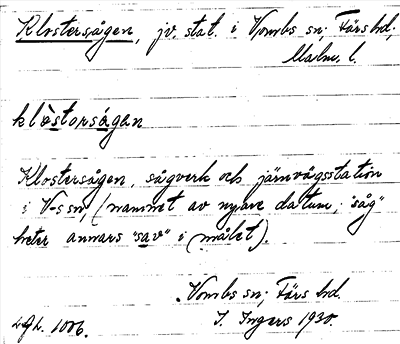 Klostersågen, jv. stat. i Vombs sn; Färs hd;
Malm. l.
klòstorságan
Klostersågen, sågverk och järnvägsstation
i V-s sn, (namnet av nyare datum; "såg"
heter annars "sav" i målet).
Vombs sn; Färs hd.
I. Ingers 1930.
1006.